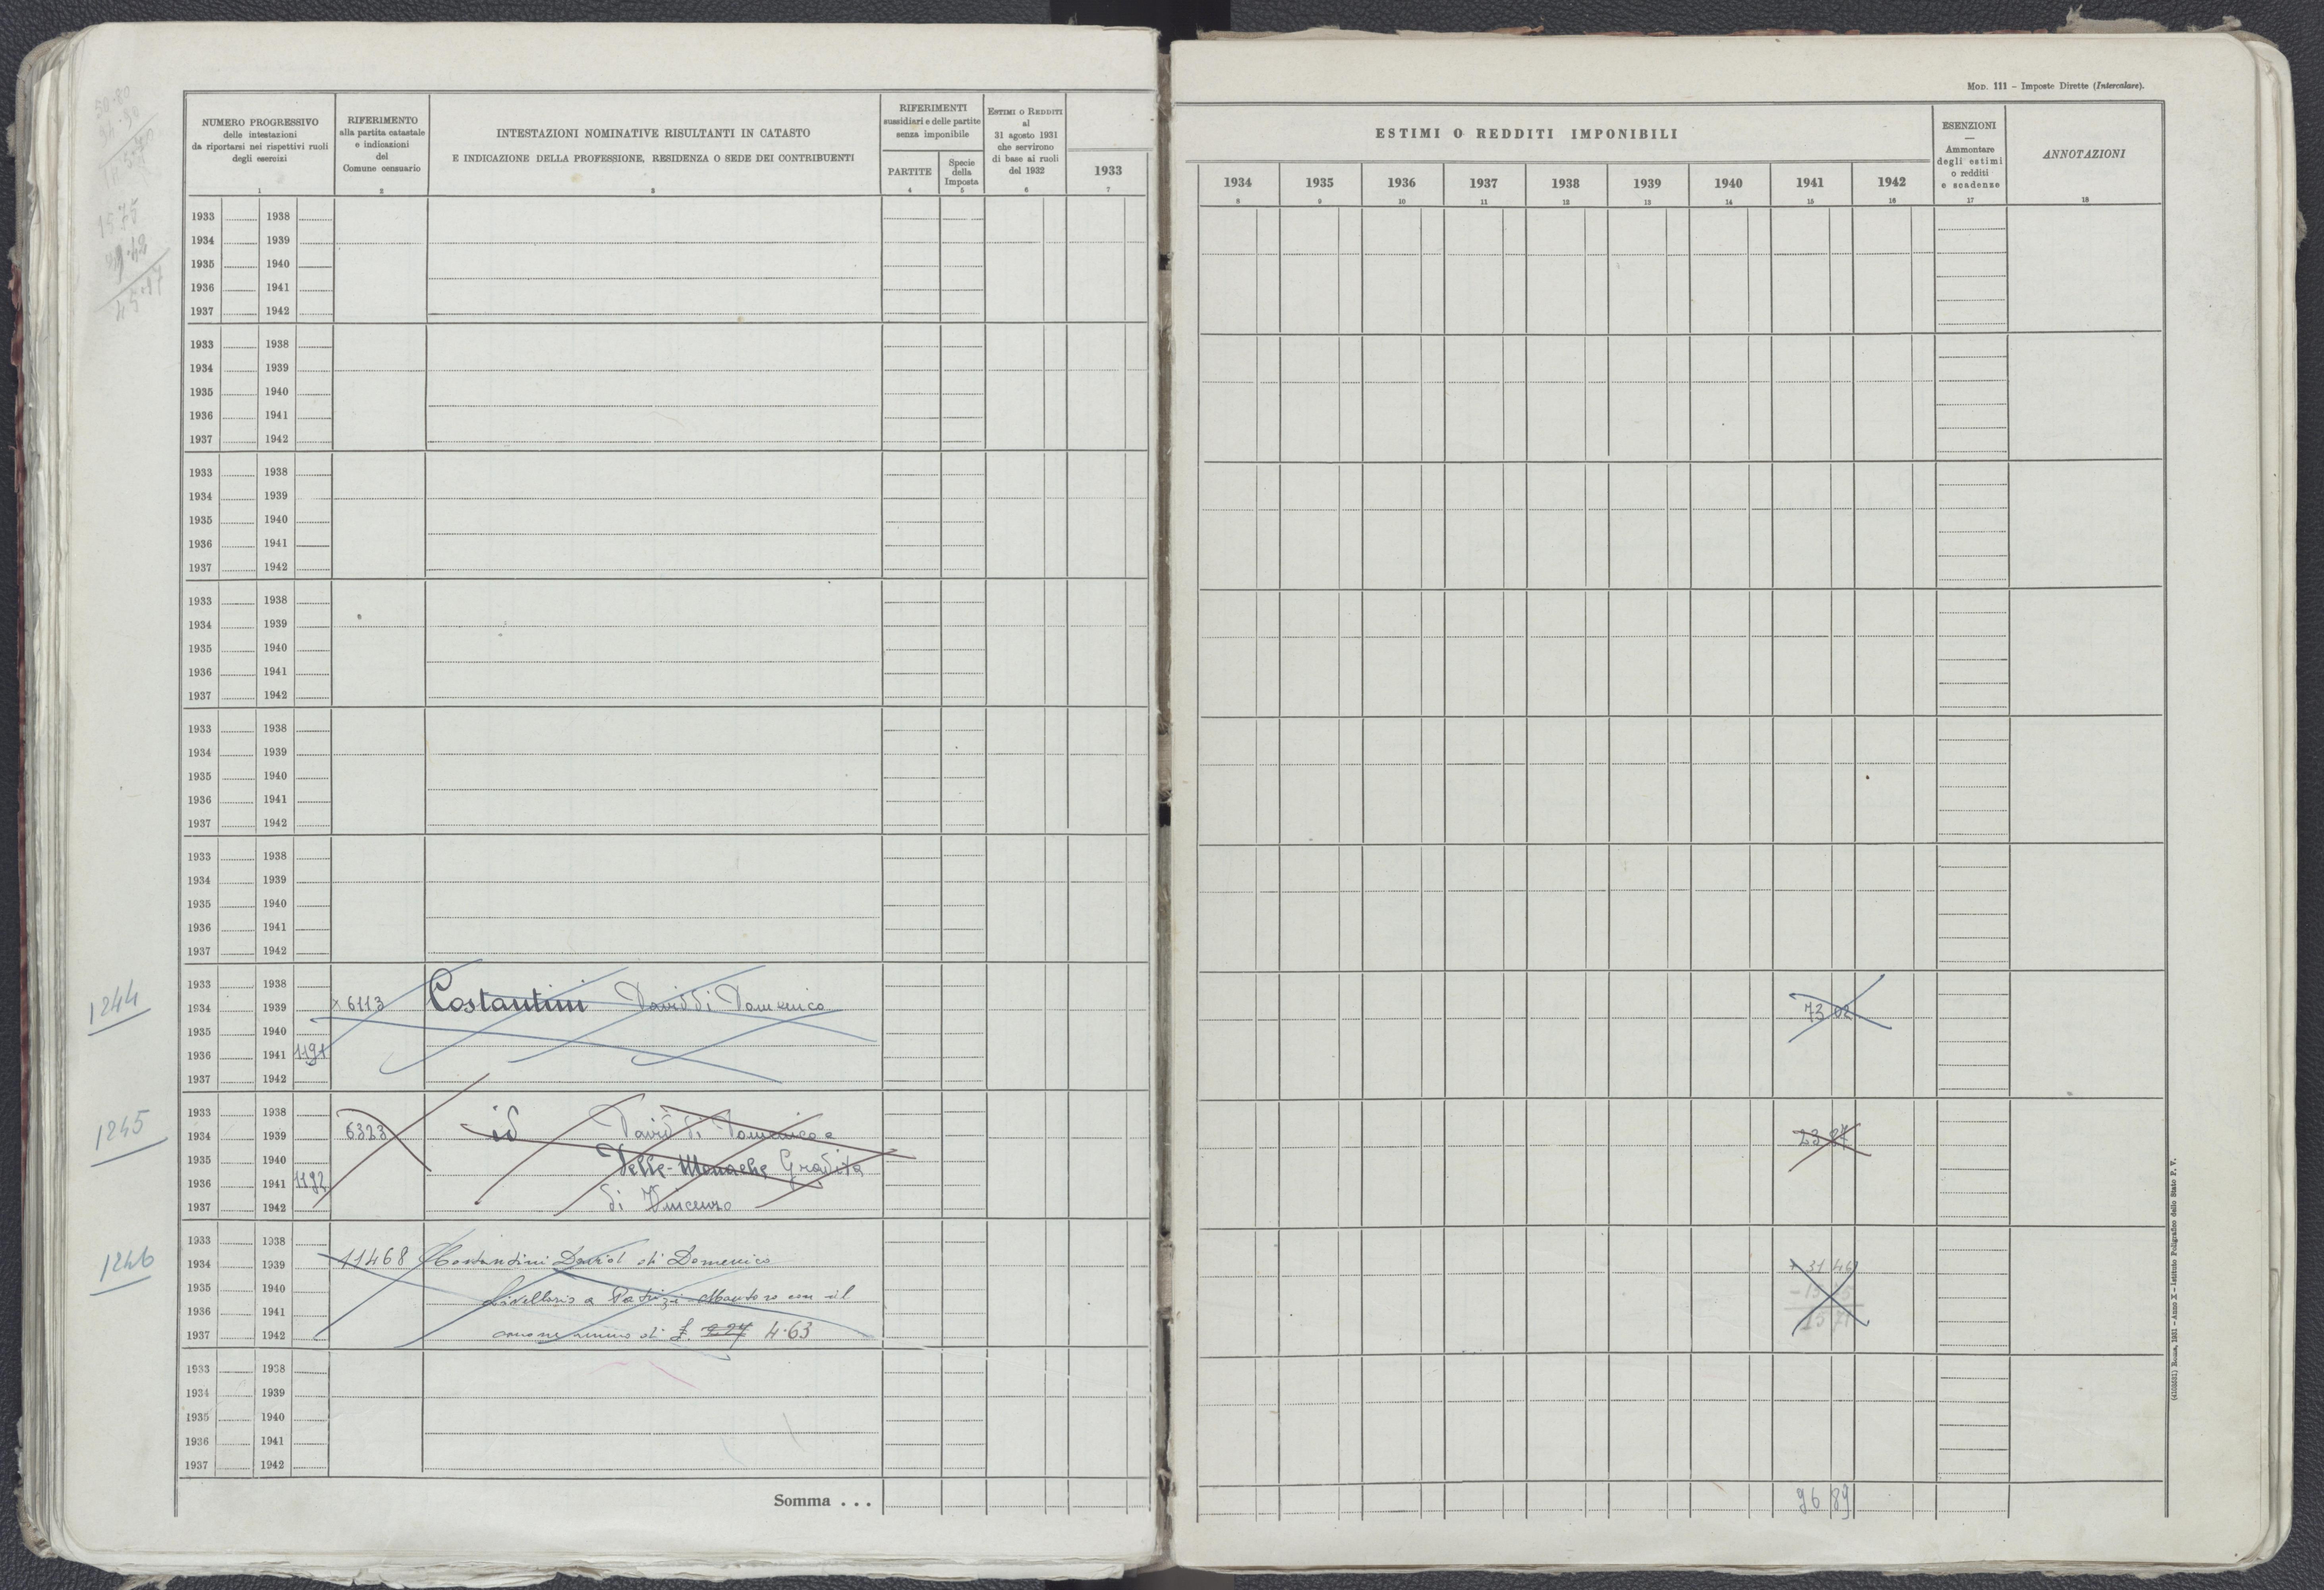 50.80
NUMERO PROGRESSIVO
delle intestazioni
da riportarsi nei rispettivi ruoli
degli esercizi
1
RIFERIMENTO
alla partita catastale
e indicazioni
del
Comune censuario
2
INTESTAZIONI NOMINATIVE RISULTANTI IN CATASTO
E INDICAZIONE DELLA PROFESSIONE, RESIDENZA O SEDE DEI CONTRIBUENTI
3
RIFERIMENTI
sussidiari e delle partite
senza imponibile
PARTITE
4
Specie
della
Imposta
5
ESTIMI O REDDITI
al
31 agosto 1931
che servirono
di base ai ruoli
del 1932
6
1933
7
MOD. 111 – Imposte Dirette (Intercalare).
ESTIMI O REDDITI IMPONIBILI
1934 1935 1936 1937 1938 1939 1940 1941 1942
8 9 10 11 12 13 14 15 16
ESENZIONI
—
Ammontare
degli estimi
o redditi
e scadenze
17
ANNOTAZIONI
18
1933 1938
1934 1939
1935 1940
1936 1941
1937 1942
1933 1938
1934 1939
1935 1940
1936 1941
1937 1942
1933 1938
1934 1939
1935 1940
1936 1941
1937 1942
1933 1938
1934 1939
1935 1940
1936 1941
1937 1942
1933 1938
1934 1939
1935 1940
1936 1941
1937 1942
1933 1938
1934 1939
1935 1940
1936 1941
1937 1942
1933 1938
1244 1934 1939 x 6113 Costantini David di Domenico 73 02
1935 1940
1936 1941 1191
1937 1942
1933 1938
1245 1934 1939 6323 id David di Domenico e 23 87
1935 1940 Delle-Monache Gradita
1936 1941 1192
1937 1942 di Vincenzo
1933 1938
1246 1934 1939 11468 Costantini David di Domenico + 31 46
1935 1940 Livellario a Patrizi-Montoro con il
1936 1941
1937 1942 canone annuo di £. 227 4.63 15 71
1933 1938
1934 1939
1935 1940
1936 1941
1937 1942
Somma . . . 96 89
(4103551) Roma, 1931 – Anno X – Istituto Poligrafico dello Stato P. V.